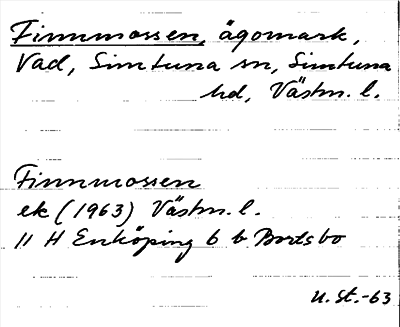 Finnmossen, ägomark,
Vad, Simtuna sn, Simtuna
hd, Västm. l.
Finnmossen
ek (1963) Västm. l.
11 H Enköping 6 b Bortsbo
U. St. -63